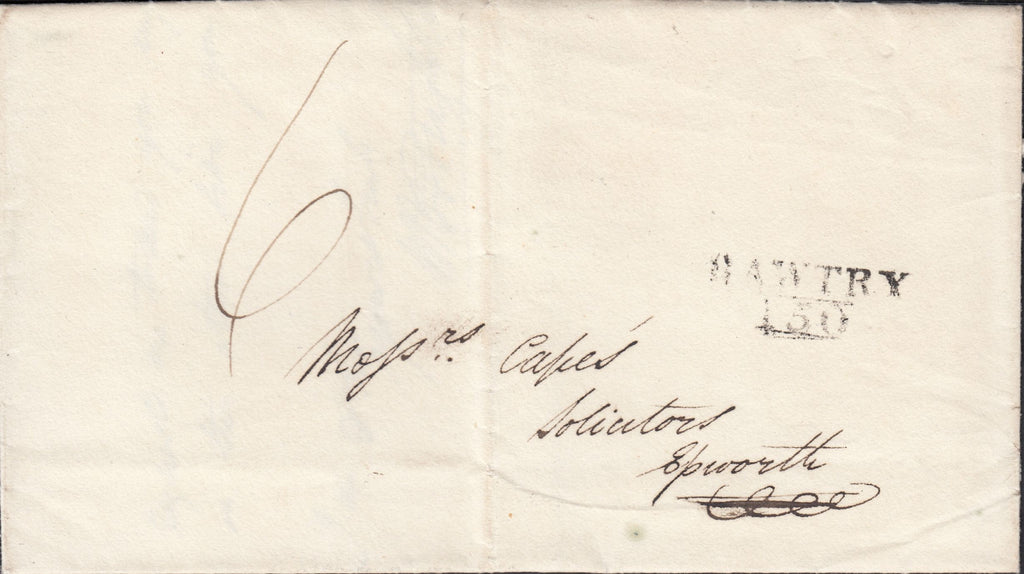 6
BAWTRY
150
Messrs. Capes
Solicitors
Epworth